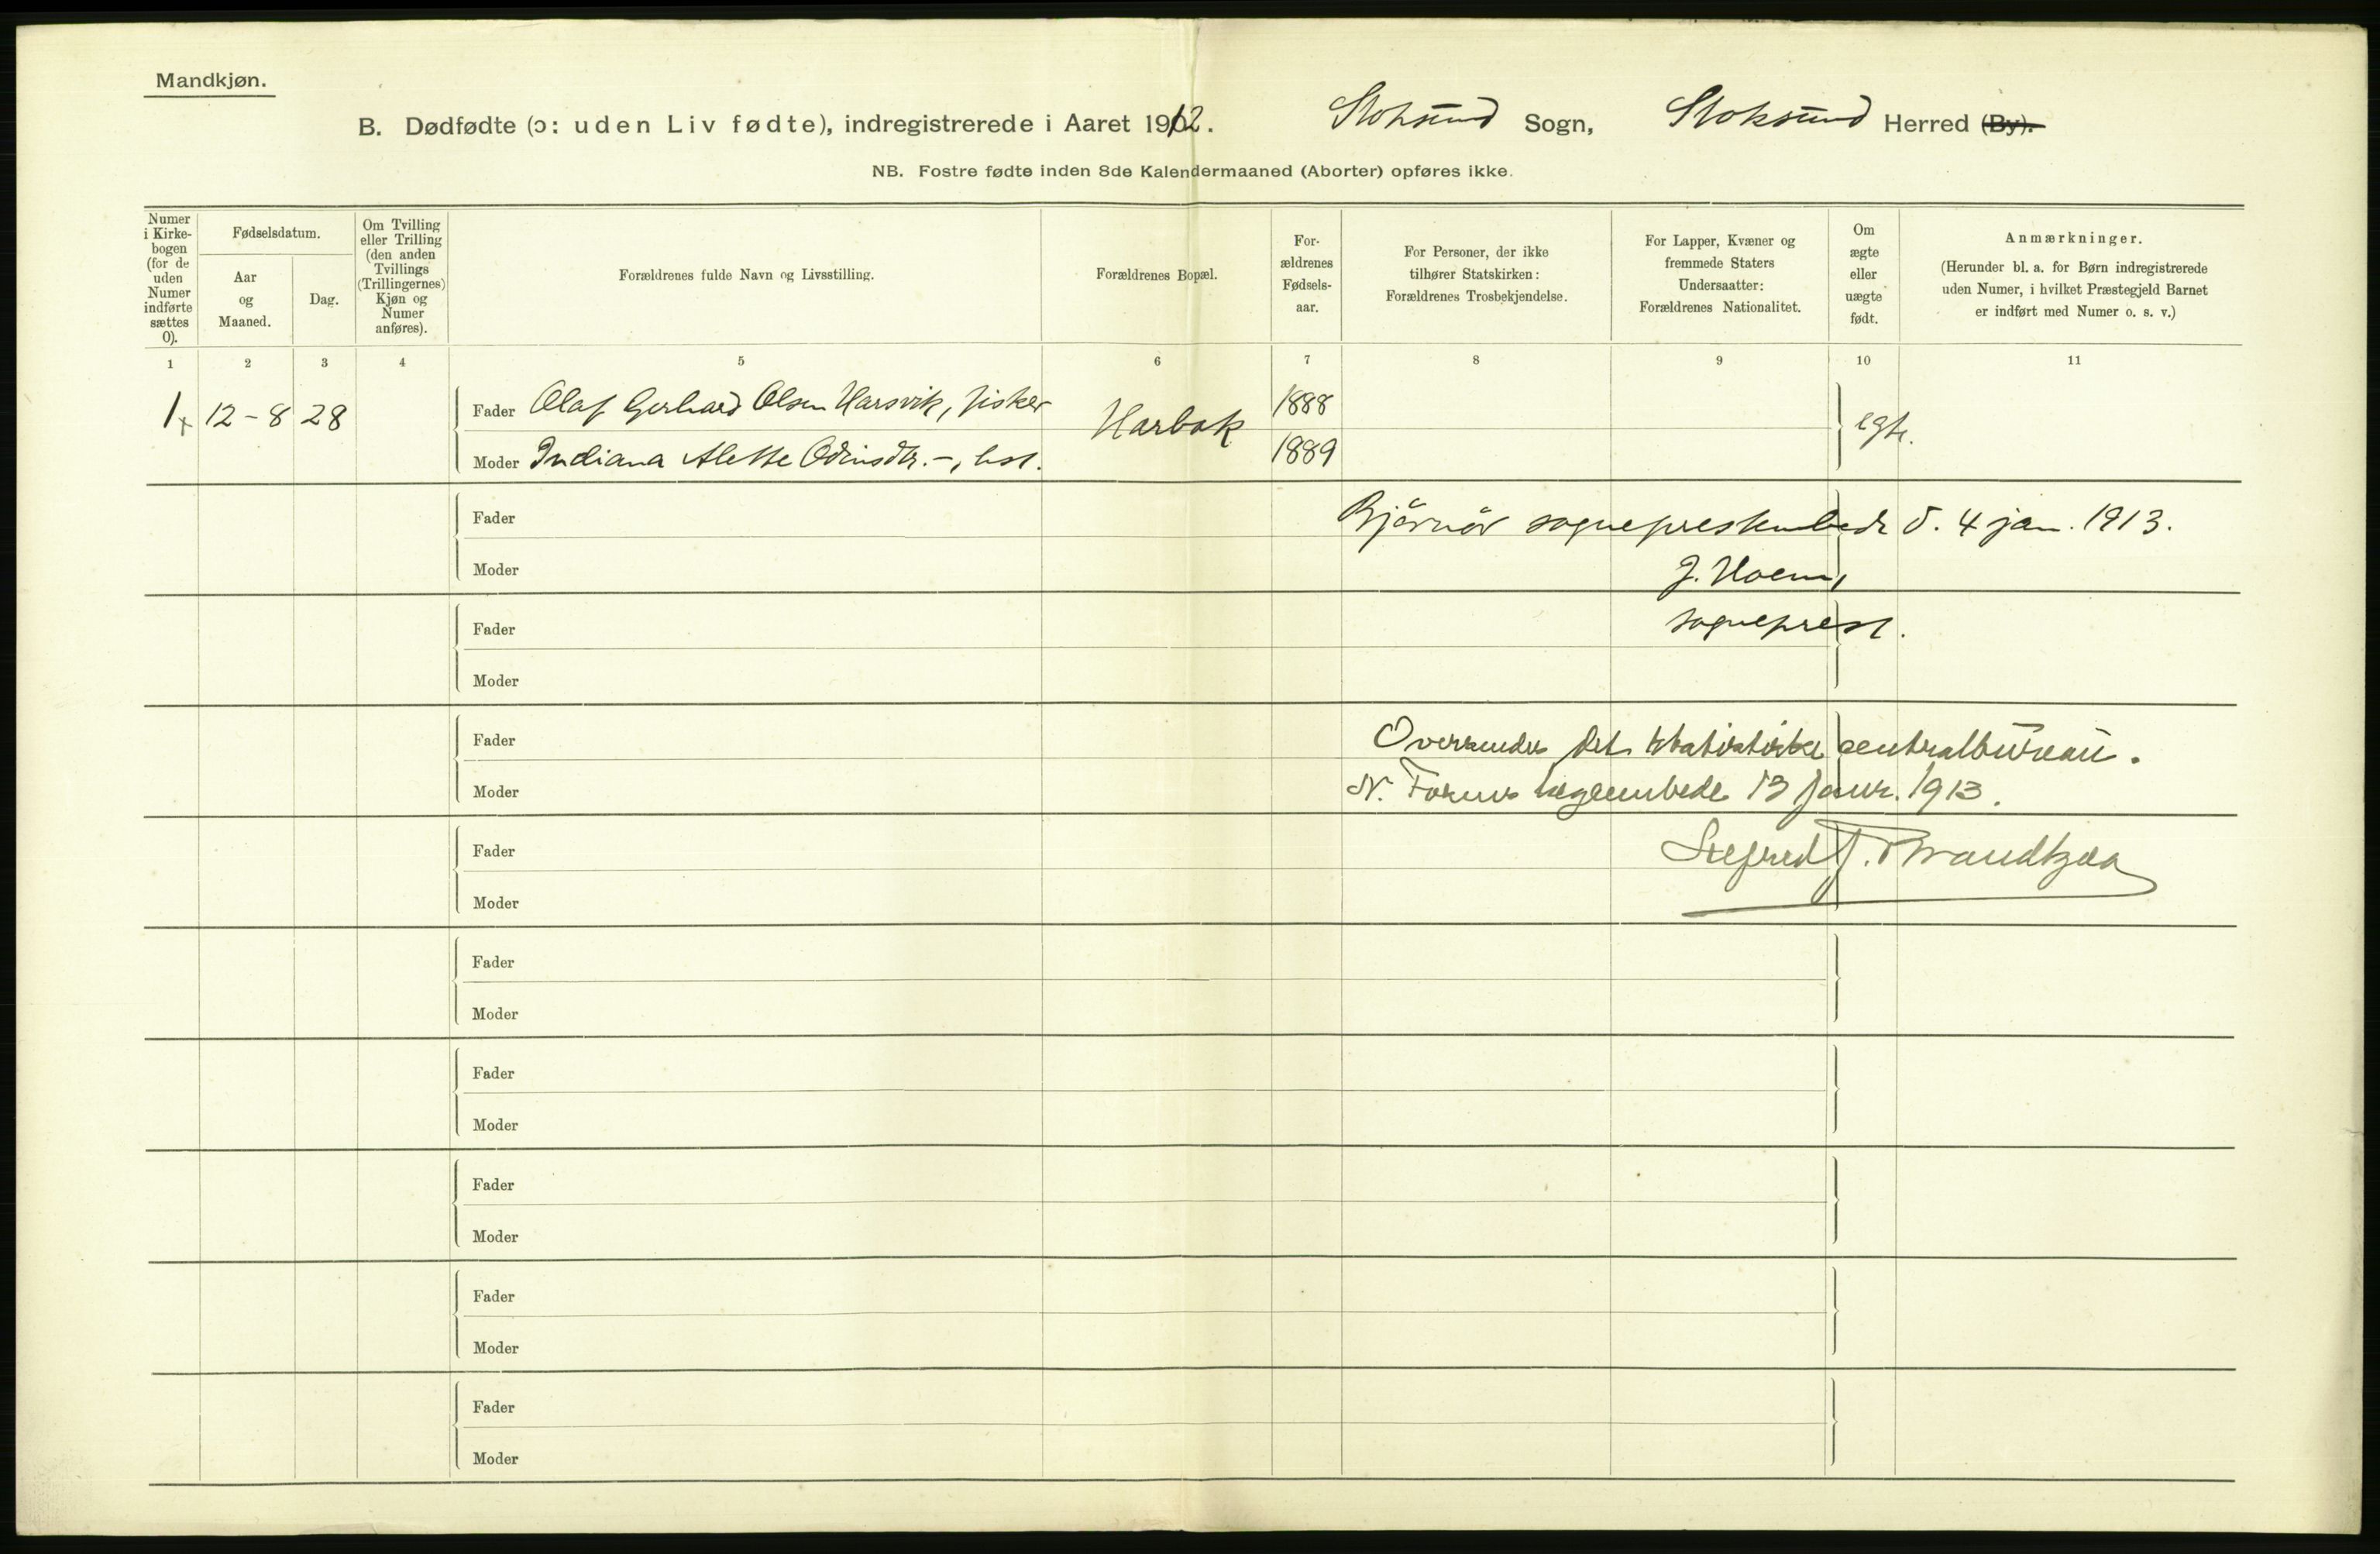 Mandkjøn.
B. Dødfødte (ɔ: uden Liv fødte), indregistrerede i Aaret 1912. Stoksund Sogn, Stoksund Herred (By).
NB. Fostre fødte inden 8de Kalendermaaned (Aborter) opføres ikke.
Numer i Kirke- bogen (for de uden Numer indførte sættes 0).
Fødselsdatum.
Aar og Maaned.
Dag.
Om Tvilling eller Trilling (den anden Tvillings (Trillingernes) Kjøn og Numer anføres).
Forældrenes fulde Navn og Livsstilling.
Forældrenes Bopæl.
For- ældrenes Fødsels- aar.
For Personer, der ikke tilhører Statskirken: Forældrenes Trosbekjendelse.
For Lapper, Kvæner og fremmede Staters Undersaatter: Forældrenes Nationalitet.
Om ægte eller uægte født.
Anmærkninger.
(Herunder bl. a. for Børn indregistrerede uden Numer, i hvilket Præstegjeld Barnet er indført med Numer o. s. v.)
1 2 3 4 5 6 7 8 9 10 11
1 12-8 28 Fader Olaf Gerhard Olsen Harsvik, fisker Harbak 1888 egte.
Moder Indiana Alette Odinsdtr. -, hst. 1889
Fader Bjørnør sogneprestembede d. 4 jan. 1913.
Moder J. Hoem,
Fader sogneprest.
Moder
Fader Oversendes Det statistiske centralbureau.
Moder N. Fosens lægeembede 13 Janr. 1913.
Fader J. Brandtzæg
Moder
Fader
Moder
Fader
Moder
Fader
Moder
Fader
Moder
Fader
Moder